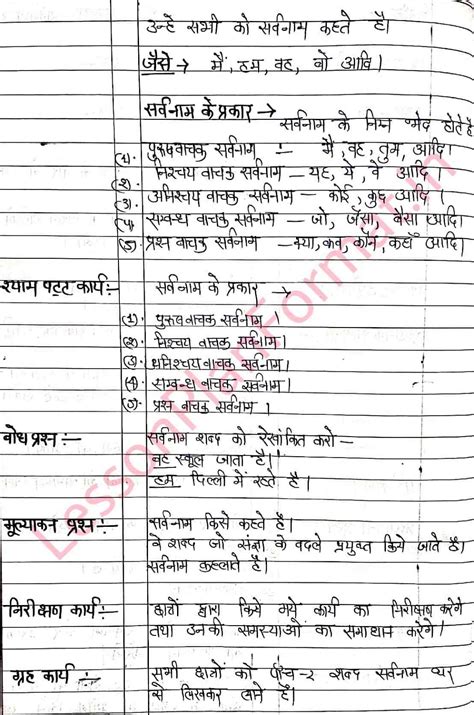 उन्हें सभी को सर्वनाम कहते हैं।
जैसे → मैं, हम, वह, वो आदि।
सर्वनाम के प्रकार →
सर्वनाम के निम्न भेद होते हैं
(1). पुरुषवाचक सर्वनाम :- मैं, वह, तुम, आदि।
(2). निश्चय वाचक सर्वनाम – यह, ये, वे आदि।
(3). अनिश्चय वाचक सर्वनाम – कोई, कुछ आदि।
(4). सम्बन्ध वाचक सर्वनाम – जो, जैसा, वैसा आदि।
(5). प्रश्न वाचक सर्वनाम – क्या, कब, कौन, कहाँ आदि।
श्याम पट्ट कार्य:- सर्वनाम के प्रकार →
(1). पुरुषवाचक सर्वनाम।
(2). निश्चय वाचक सर्वनाम।
(3). अनिश्चय वाचक सर्वनाम।
(4). सम्बन्ध वाचक सर्वनाम।
(5). प्रश्न वाचक सर्वनाम।
बोध प्रश्न :- सर्वनाम शब्द को रेखांकित करो –
वह स्कूल जाता है।
हम दिल्ली में रहते हैं।
मूल्याकन प्रश्न:- सर्वनाम किसे कहते हैं।
वे शब्द जो संज्ञा के बदले प्रयुक्त किये जाते हैं।
सर्वनाम कहलाते हैं।
निरीक्षण कार्य:- छात्रों द्वारा किये गये कार्य का निरीक्षण करेंगे
तथा उनकी समस्याओं का समाधान करेंगे।
ग्रह कार्य :- सभी छात्रों को पाँच-२ शब्द सर्वनाम घर
से लिखकर लाने हैं।
LessonPlanFormat.in